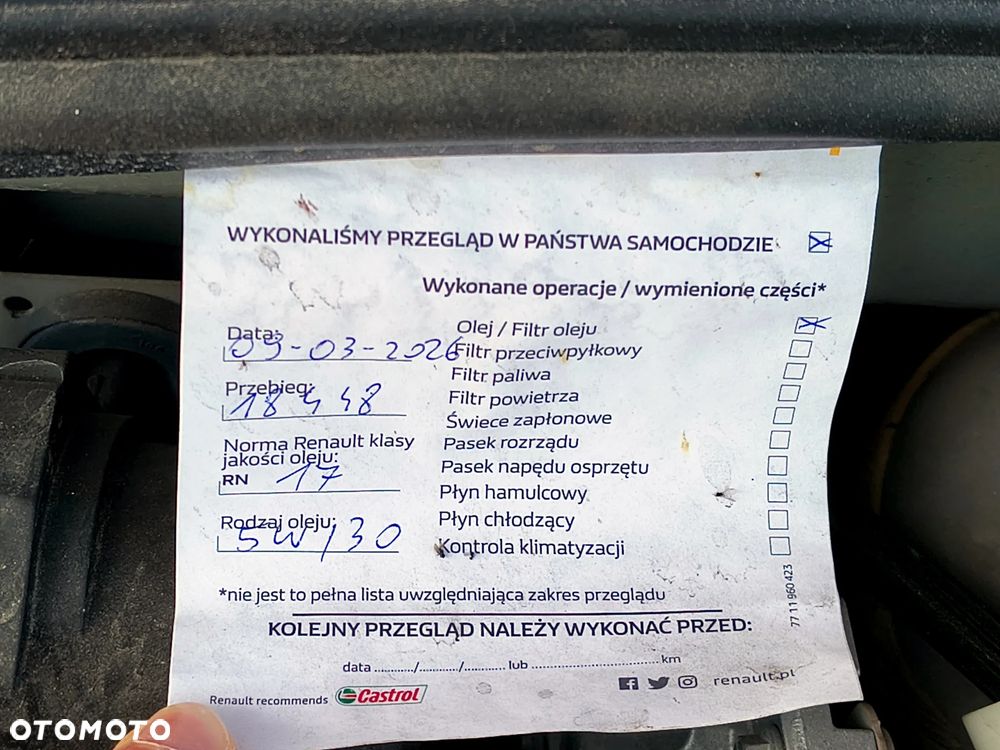 WYKONALIŚMY PRZEGLĄD W PAŃSTWA SAMOCHODZIE
Wykonane operacje / wymienione części*
Data: 09-03-2026
Przebieg: 18448
Norma Renault klasy
jakości oleju:
RN 17
Rodzaj oleju: 5W/30
Olej / Filtr oleju
Filtr przeciwpyłkowy
Filtr paliwa
Filtr powietrza
Świece zapłonowe
Pasek rozrządu
Pasek napędu osprzętu
Płyn hamulcowy
Płyn chłodzący
Kontrola klimatyzacji
77 11 960 423
*nie jest to pełna lista uwzględniająca zakres przeglądu
KOLEJNY PRZEGLĄD NALEŻY WYKONAĆ PRZED:
data ............/............/............ lub ...................................... km
Renault recommends Castrol
renault.pl
OTOMOTO